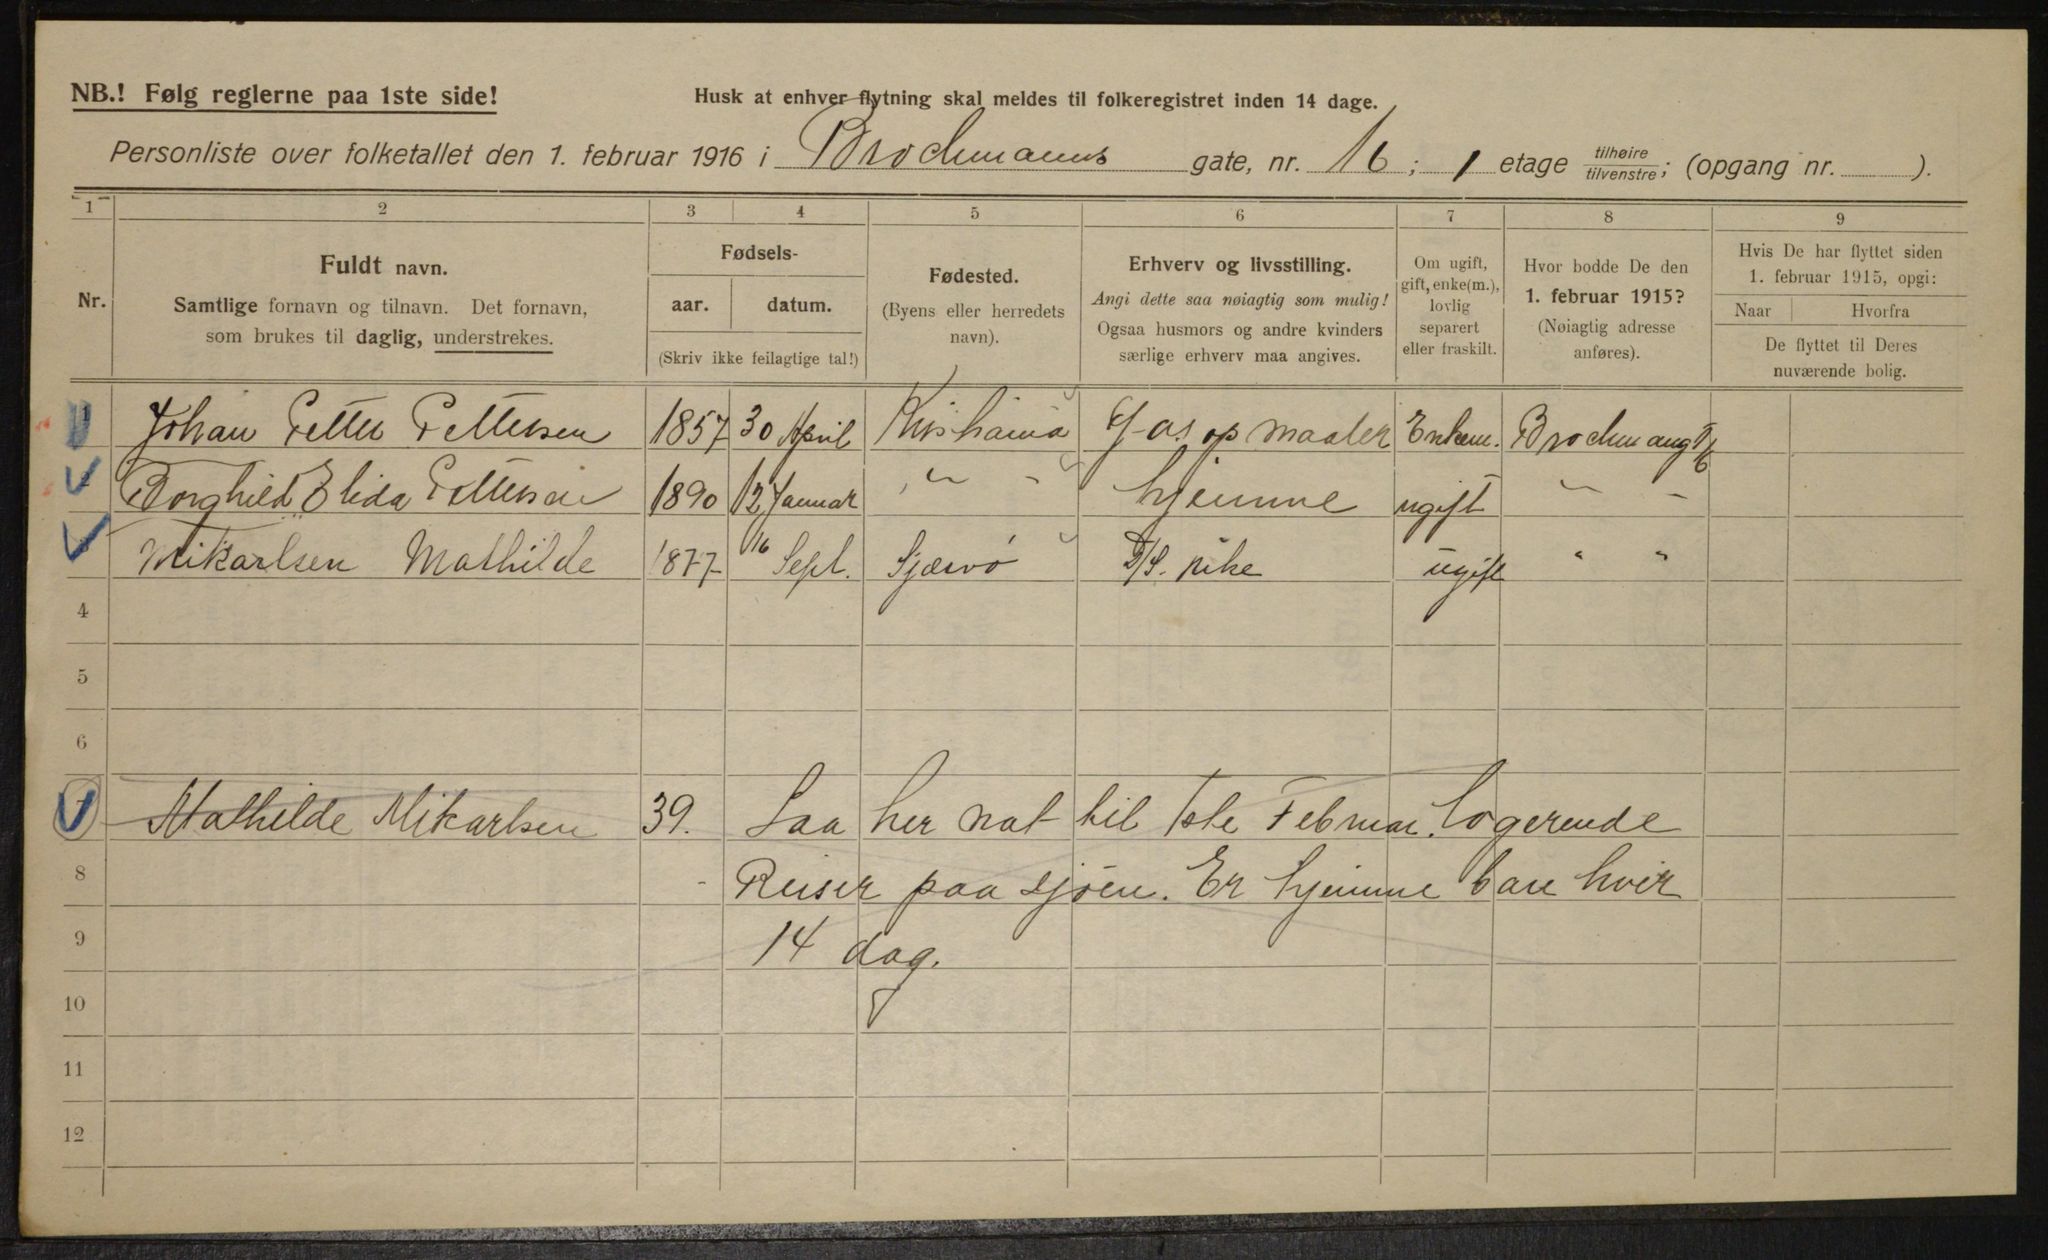 NB.! Følg reglerne paa 1ste side!
Husk at enhver flytning skal meldes til folkeregistret inden 14 dage.
Personliste over folketallet den 1. februar 1916 i Brochmanns gate, nr. 16; 1 etage tilhøire/tilvenstre; (opgang nr. ).
1 2 3 4 5 6 7 8 9
Nr.
Fuldt navn.
Samtlige fornavn og tilnavn. Det fornavn,
som brukes til daglig, understrekes.
Fødsels-
aar. datum.
(Skriv ikke feilagtige tal!)
Fødested.
(Byens eller herredets
navn).
Erhverv og livsstilling.
Angi dette saa nøiagtig som mulig!
Ogsaa husmors og andre kvinders
særlige erhverv maa angives.
Om ugift,
gift, enke(m.),
lovlig
separert
eller fraskilt.
Hvor bodde De den
1. februar 1915?
(Nøiagtig adresse
anføres).
Hvis De har flyttet siden
1. februar 1915, opgi:
Naar Hvorfra
De flyttet til Deres
nuværende bolig.
Johan Petter Pettersen 1857 30 April Kristiania Gasopmaaler Enkem. Brochmansg 16
Borghild Elida Pettersen 1890 12 Januar " - hjemme ugift " -
Mikarlsen Mathilde 1877 16 Sept. Sjærvö D/S. Rike ugift " "
4
5
6
7 Mathilde Mikarlsen 39. Laa her nat til 1ste Februar. Logerende
8 - Reiser paa sjöen. Er hjemme bare hver
9 14 dag.
10
11
12